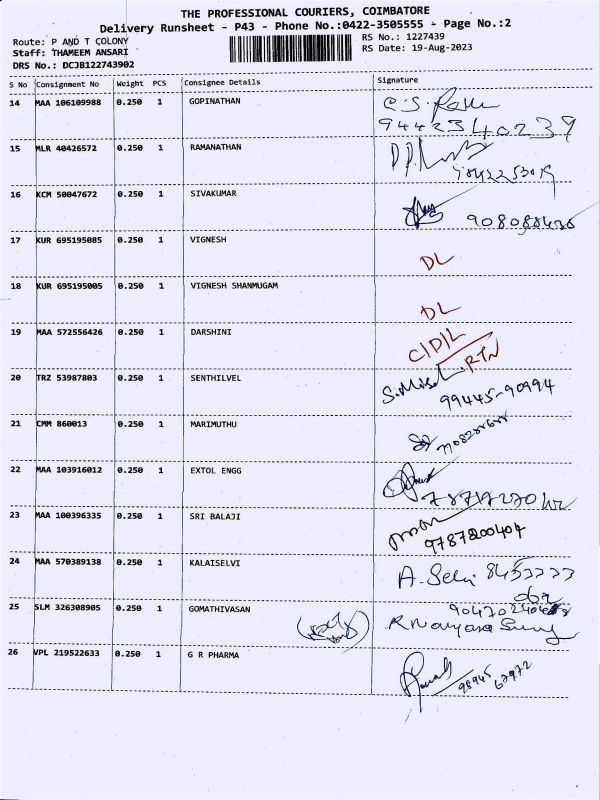 THE PROFESSIONAL COURIERS, COIMBATORE
Delivery Runsheet - P43 - Phone No.:0422-3505555 - Page No.:2
Route: P AND T COLONY
RS No.: 1227439
Staff: THAMEEM ANSARI
RS Date: 19-Aug-2023
DRS No.: DCJB122743902
S No Consignment No Weight PCS Consignee Details Signature
14 MAA 106109988 0.250 1 GOPINATHAN
9442340239
15 MLR 40426572 0.250 1 RAMANATHAN
16 KCM 50047672 0.250 1 SIVAKUMAR
17 KUR 695195085 0.250 1 VIGNESH DL
18 KUR 695195005 0.250 1 VIGNESH SHANMUGAM DL
19 MAA 572556426 0.250 1 DARSHINI C/D/L
RTN
20 TRZ 53987803 0.250 1 SENTHILVEL
99445-90994
21 CMM 860013 0.250 1 MARIMUTHU
22 MAA 103916012 0.250 1 EXTOL ENGG
23 MAA 100396335 0.250 1 SRI BALAJI
9787200404
24 MAA 570389138 0.250 1 KALAISELVI A. Selvi
25 SLM 326308905 0.250 1 GOMATHIVASAN
26 VPL 219522633 0.250 1 G R PHARMA
98945 67972